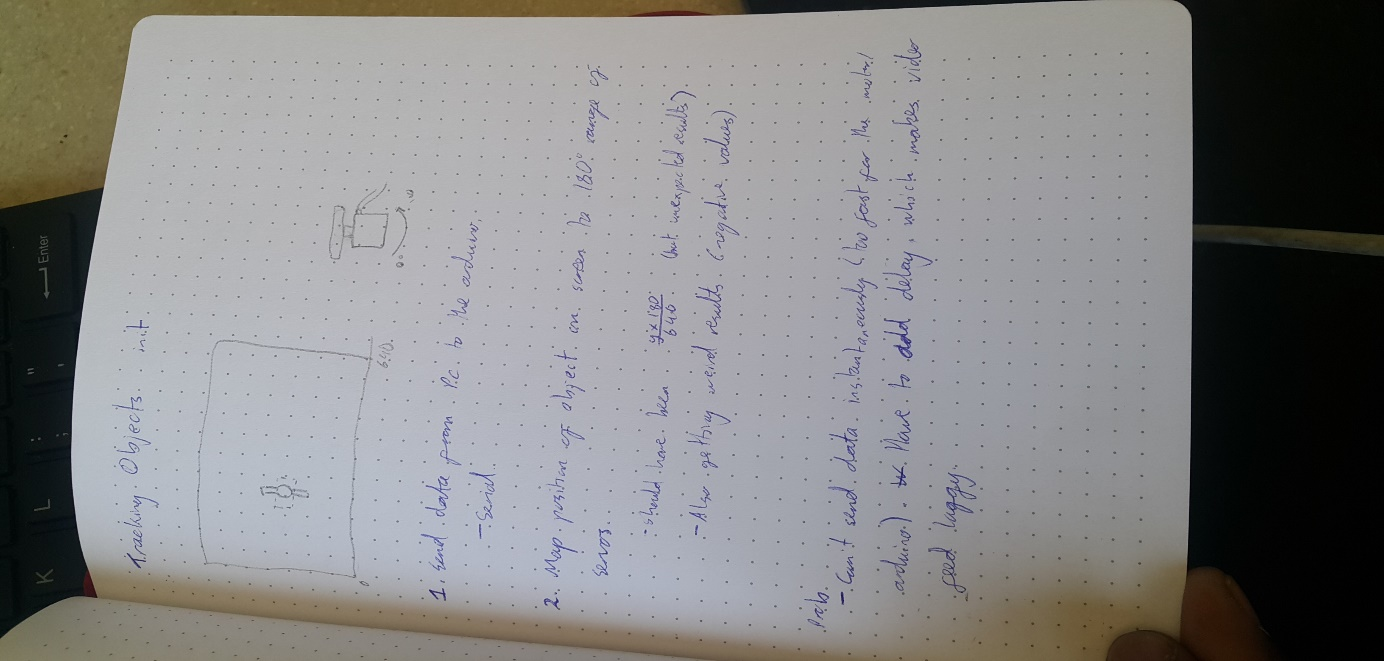 Tracking Objects init
0
640
1. Send data from P.C to the arduino.
- Serial.
2. Map position of object on screen to 180° range of
servos.
- should have been
y×180
640
(but unexpected results)
- Also getting weird results (negative values)
Prob.
- Can't send data instantaneously (too fast for the motor/
arduino). Have to add delay, which makes video
feed laggy.
K
L
;
:
"
'
Enter